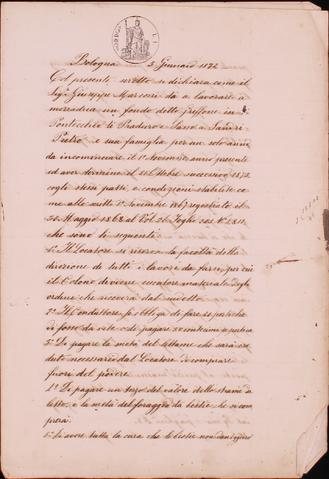 Bologna 3 Gennaio 1872
Col presente scritto si dichiara come il
Sigr. Giuseppe Marconi dà a lavorare a
mezzadria un fondo detto Griffone in
Pontecchio di Praduro e Sasso a
Pietro e sua famiglia per un solo anno
da incominciare il 1° Novembre anno presente
ed aver termine il 31 Ottobre successivo 1873
cogli stessi patti, e condizioni stabilite co
me alla scritta 1° Novembre 1867 registrata il
24 Maggio 1868 al Vol. 21 foglio
che sono le seguenti
1° Il Locatore si riserva la facoltà della
direzione di tutti i lavori da farsi, per cui
il Colono diviene esecutore materiale degli
ordini che riceverà dal suddetto
2° Il Conduttore si obbliga di fare 20 pertiche
di fosso da viti o di pagare centesimi a pertica
3° Di pagare la metà del letame che sarà cre
duto necessario dal Locatore di comprare
fuori del podere
4° Di pagare un terzo del valore dello strame da
letto, e la metà del foraggio da bestie che si com
prerà
5° Di avere tutta la cura che le bestie non dan